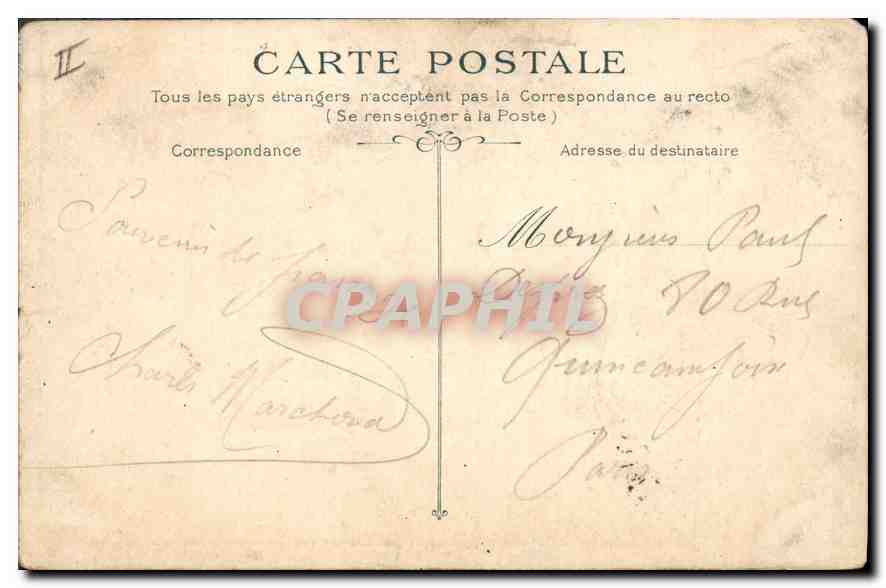 II
CARTE POSTALE
Tous les pays étrangers n'acceptent pas la Correspondance au recto
(Se renseigner à la Poste)
Correspondance
Souvenir de
Charles Marchand
Adresse du destinataire
Monsieur Paul
80 Rue
Quincampoix
Paris
CPAPHIL